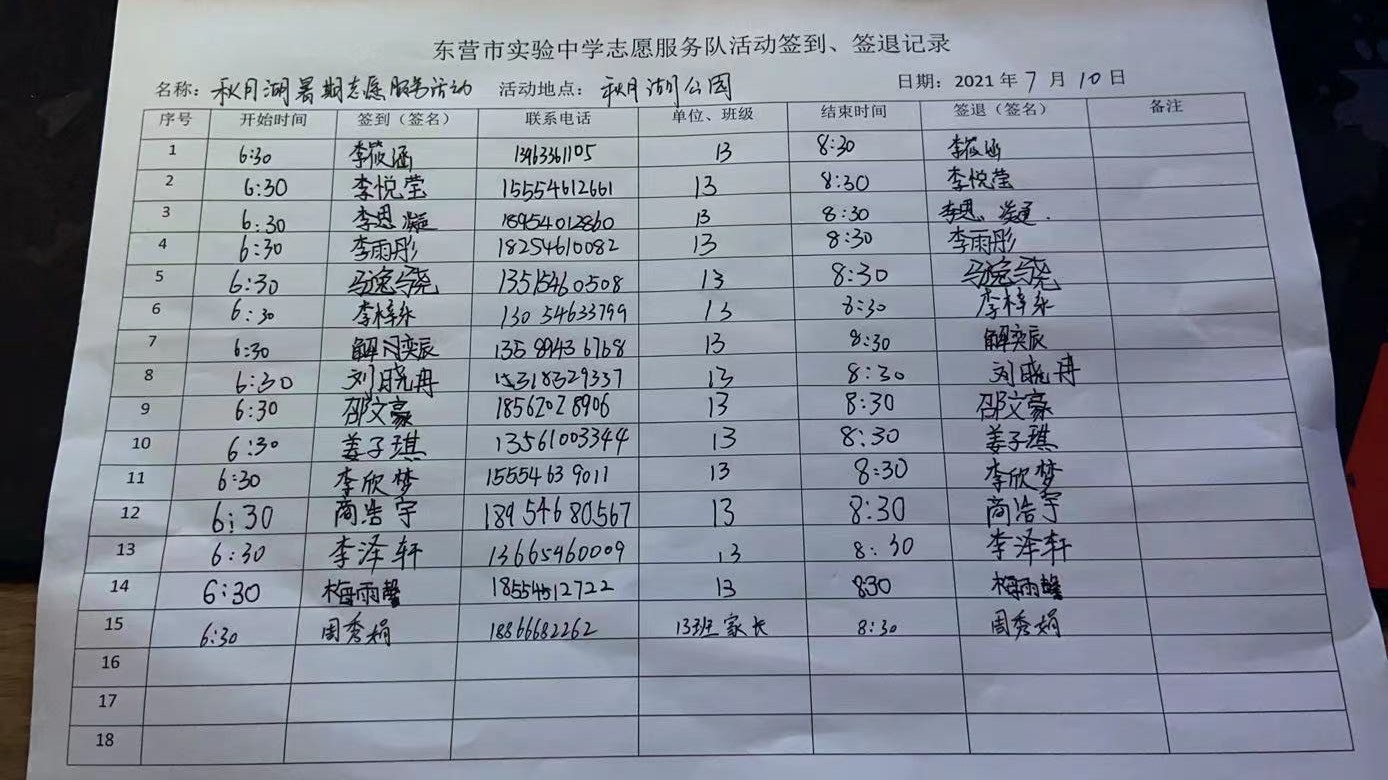 东营市实验中学志愿服务队活动签到、签退记录
名称：秋月湖暑期志愿服务活动 活动地点：秋月湖公园 日期：2021年7月10日
序号 开始时间 签到（签名） 联系电话 单位、班级 结束时间 签退（签名） 备注
1 6:30 李筱涵 13963361105 13 8:30 李筱涵
2 6:30 李悦莹 15554612661 13 8:30 李悦莹
3 6:30 李思凝 18954012860 13 8:30 李思凝
4 6:30 李雨彤 18254610082 13 8:30 李雨彤
5 6:30 13515460508 13 8:30
6 6:30 李梓乐 13054633799 13 8:30 李梓乐
7 6:30 解奕辰 13589436768 13 8:30 解奕辰
8 6:30 刘晓冉 15318329337 13 8:30 刘晓冉
9 6:30 邵文豪 18562028906 13 8:30 邵文豪
10 6:30 姜子琪 13561003344 13 8:30 姜子琪
11 6:30 李欣梦 15554639011 13 8:30 李欣梦
12 6:30 商浩宇 18954680567 13 8:30 商浩宇
13 6:30 李泽轩 13665460009 13 8:30 李泽轩
14 6:30 梅雨馨 18554512722 13 830 梅雨馨
15 6:30 周秀娟 18866682262 13班家长 8:30 周秀娟
16
17
18